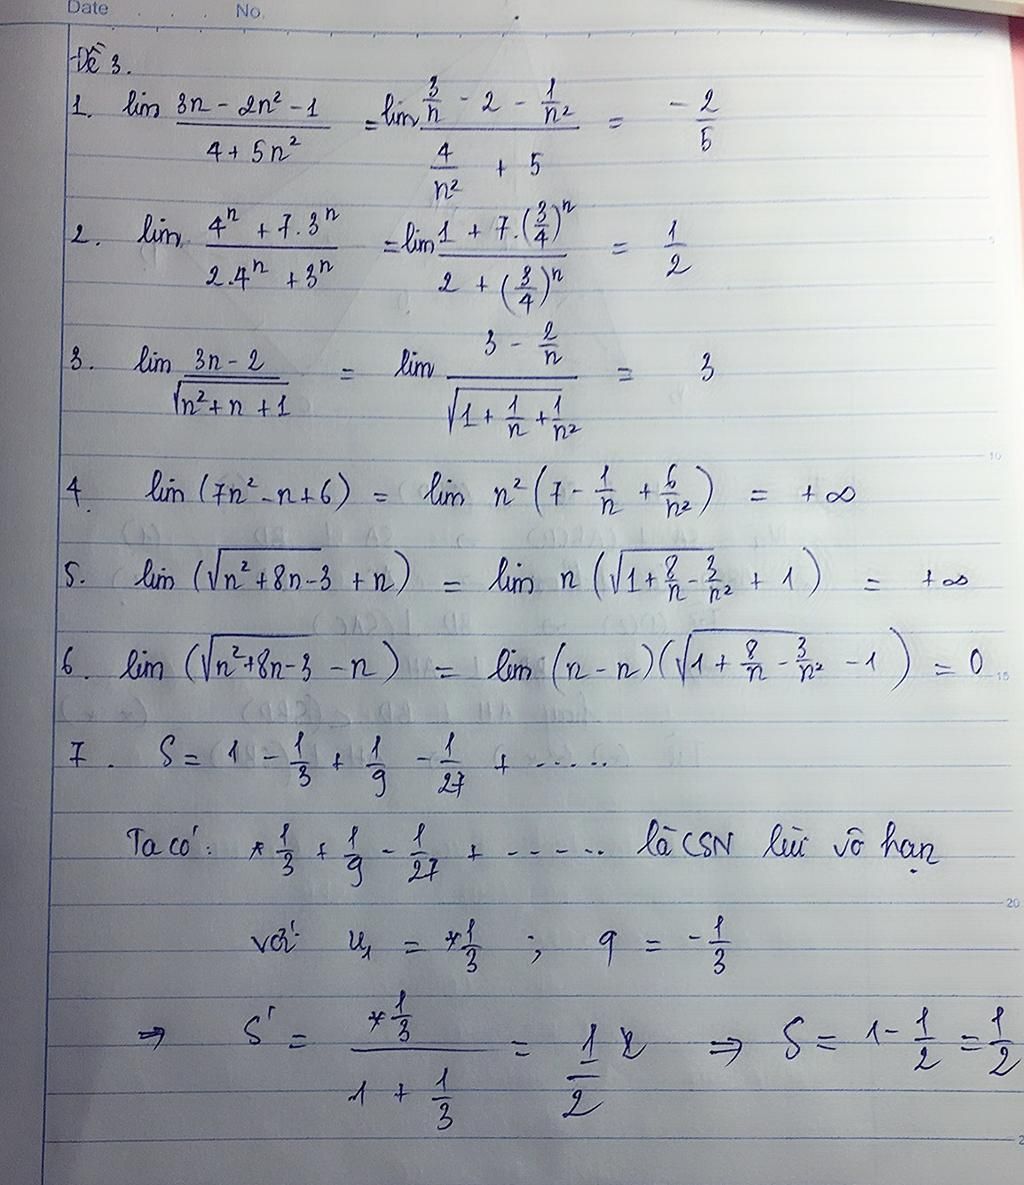 Date No.
Đề 3.
1. lim (3n - 2n² - 1)/(4 + 5n²) = lim (3/n - 2 - 1/n²)/(4/n² + 5) = -2/5
2. lim (4ⁿ + 7.3ⁿ)/(2.4ⁿ + 3ⁿ) = lim (1 + 7.(3/4)ⁿ)/(2 + (3/4)ⁿ) = 1/2
3. lim (3n - 2)/√(n² + n + 1) = lim (3 - 2/n)/√(1 + 1/n + 1/n²) = 3
4. lim (7n² - n + 6) = lim n² (7 - 1/n + 6/n²) = +∞
5. lim (√(n² + 8n - 3) + n) = lim n (√(1 + 8/n - 3/n²) + 1) = +∞
6. lim (√(n² + 8n - 3) - n) = lim (n - n)(√(1 + 8/n - 3/n²) - 1) = 0
7. S = 1 - 1/3 + 1/9 - 1/27 + .....
Ta có: 1/3 + 1/9 - 1/27 + ..... là CSN lùi vô hạn
với u₁ = 1/3 ; q = -1/3
⇒ S' = (1/3)/(1 + 1/3) = 1/2 ⇒ S = 1 - 1/2 = 1/2